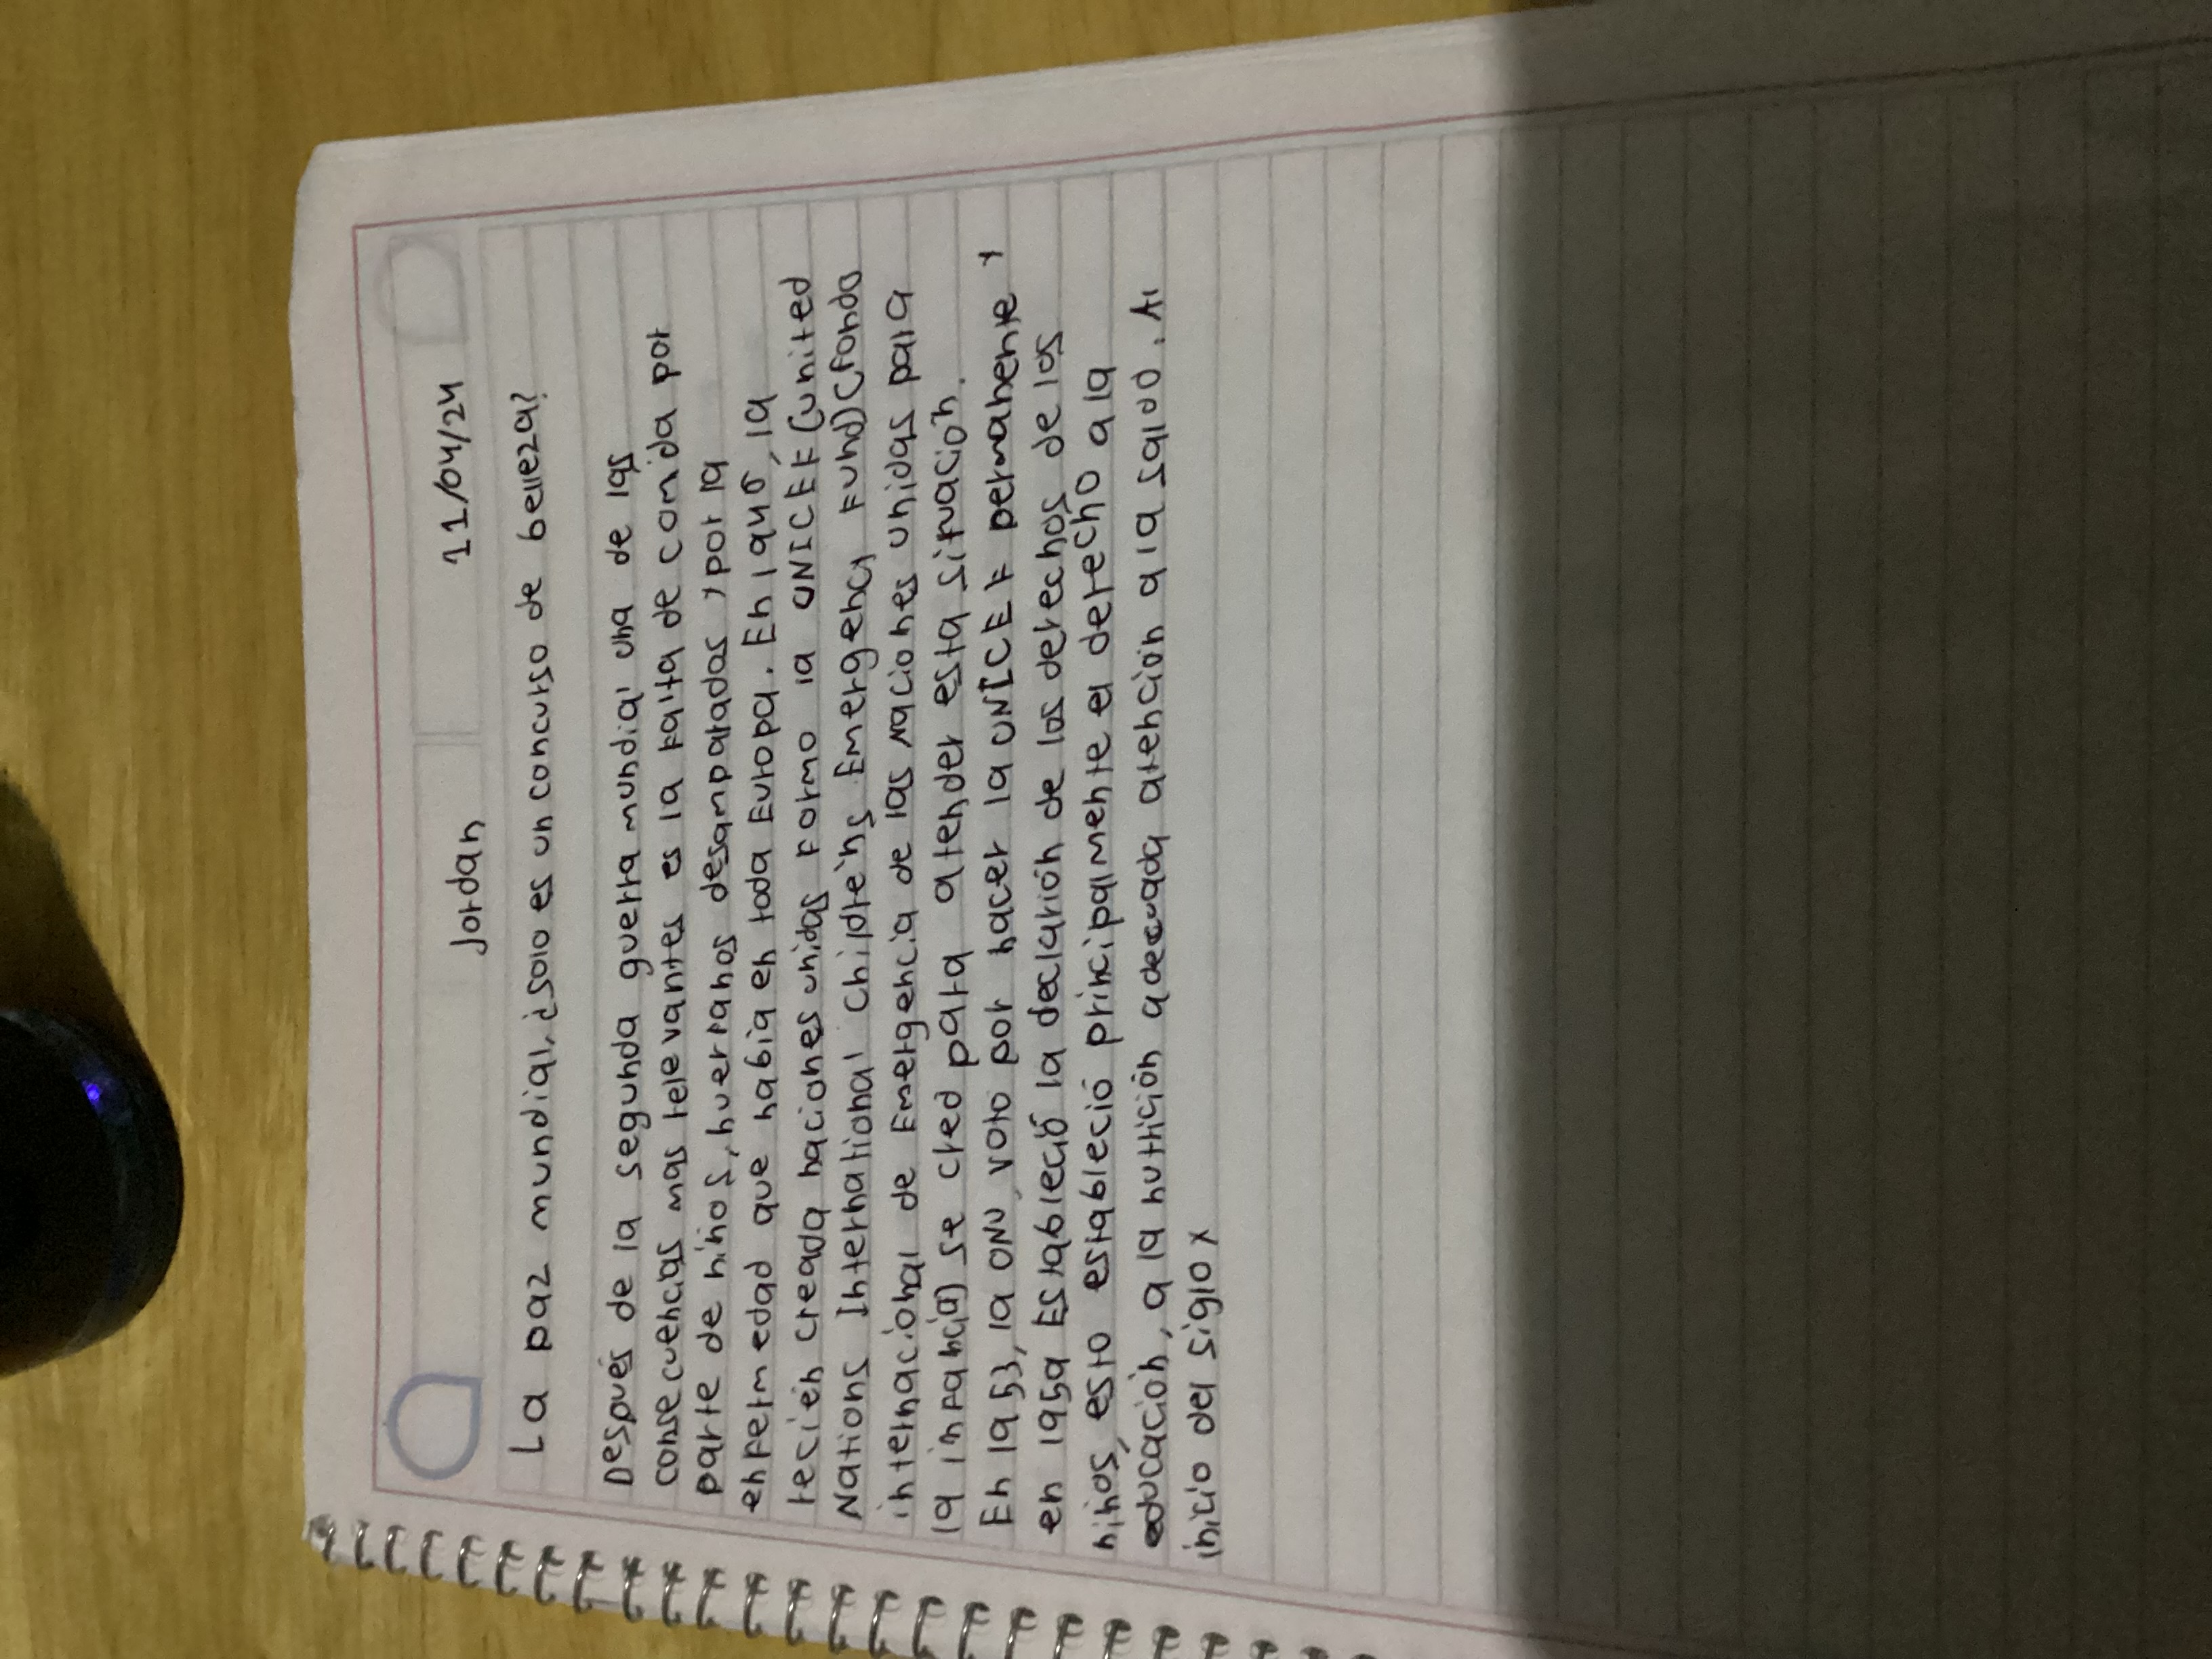 Jordan 11/04/24
La paz mundial, ¿solo es un concurso de belleza?
Después de la segunda guerra mundial una de las
consecuencias mas relevantes es la falta de comida por
parte de niños, huerfanos desamparados y por la
enfermedad que habia en toda Europa. En 1946, la
recién creada naciones unidas Formo la UNICEF (united
Nations International children's Emergency Fund) (Fondo
internacional de Emergencia de las Naciones unidas para
la infancia) se creo para atender esta situacion.
En 1953, la ONU voto por hacer la UNICEF permanente y
en 1959 Estableció la declarión de los derechos de los
niños, esto estableció principalmente el derecho a la
educación, a la nutrición adecuada atención a la salud. Al
inicio del siglo x